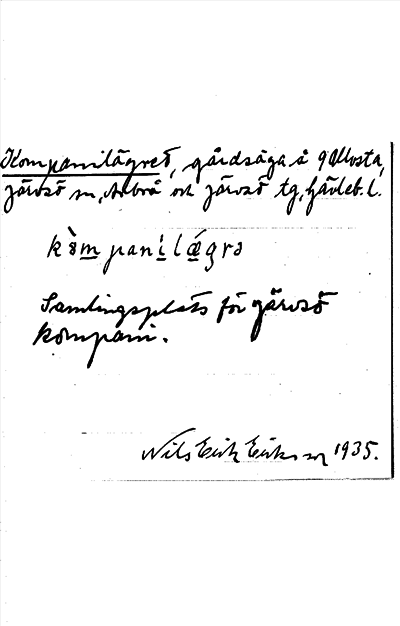 Kompanilägret, gårdsäga å 9 Ulvsta,
Järvsö sn, Arbrå och Järvsö tg, Gävleb. l.
kòm panilǽgrə
Samlingsplats för Järvsö
kompani.
Nils Erik Eriksson 1935.